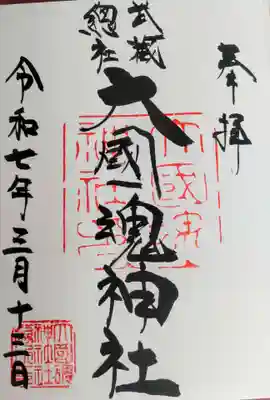 奉拝
武蔵
總社
大國魂神社
令和七年三月十三日